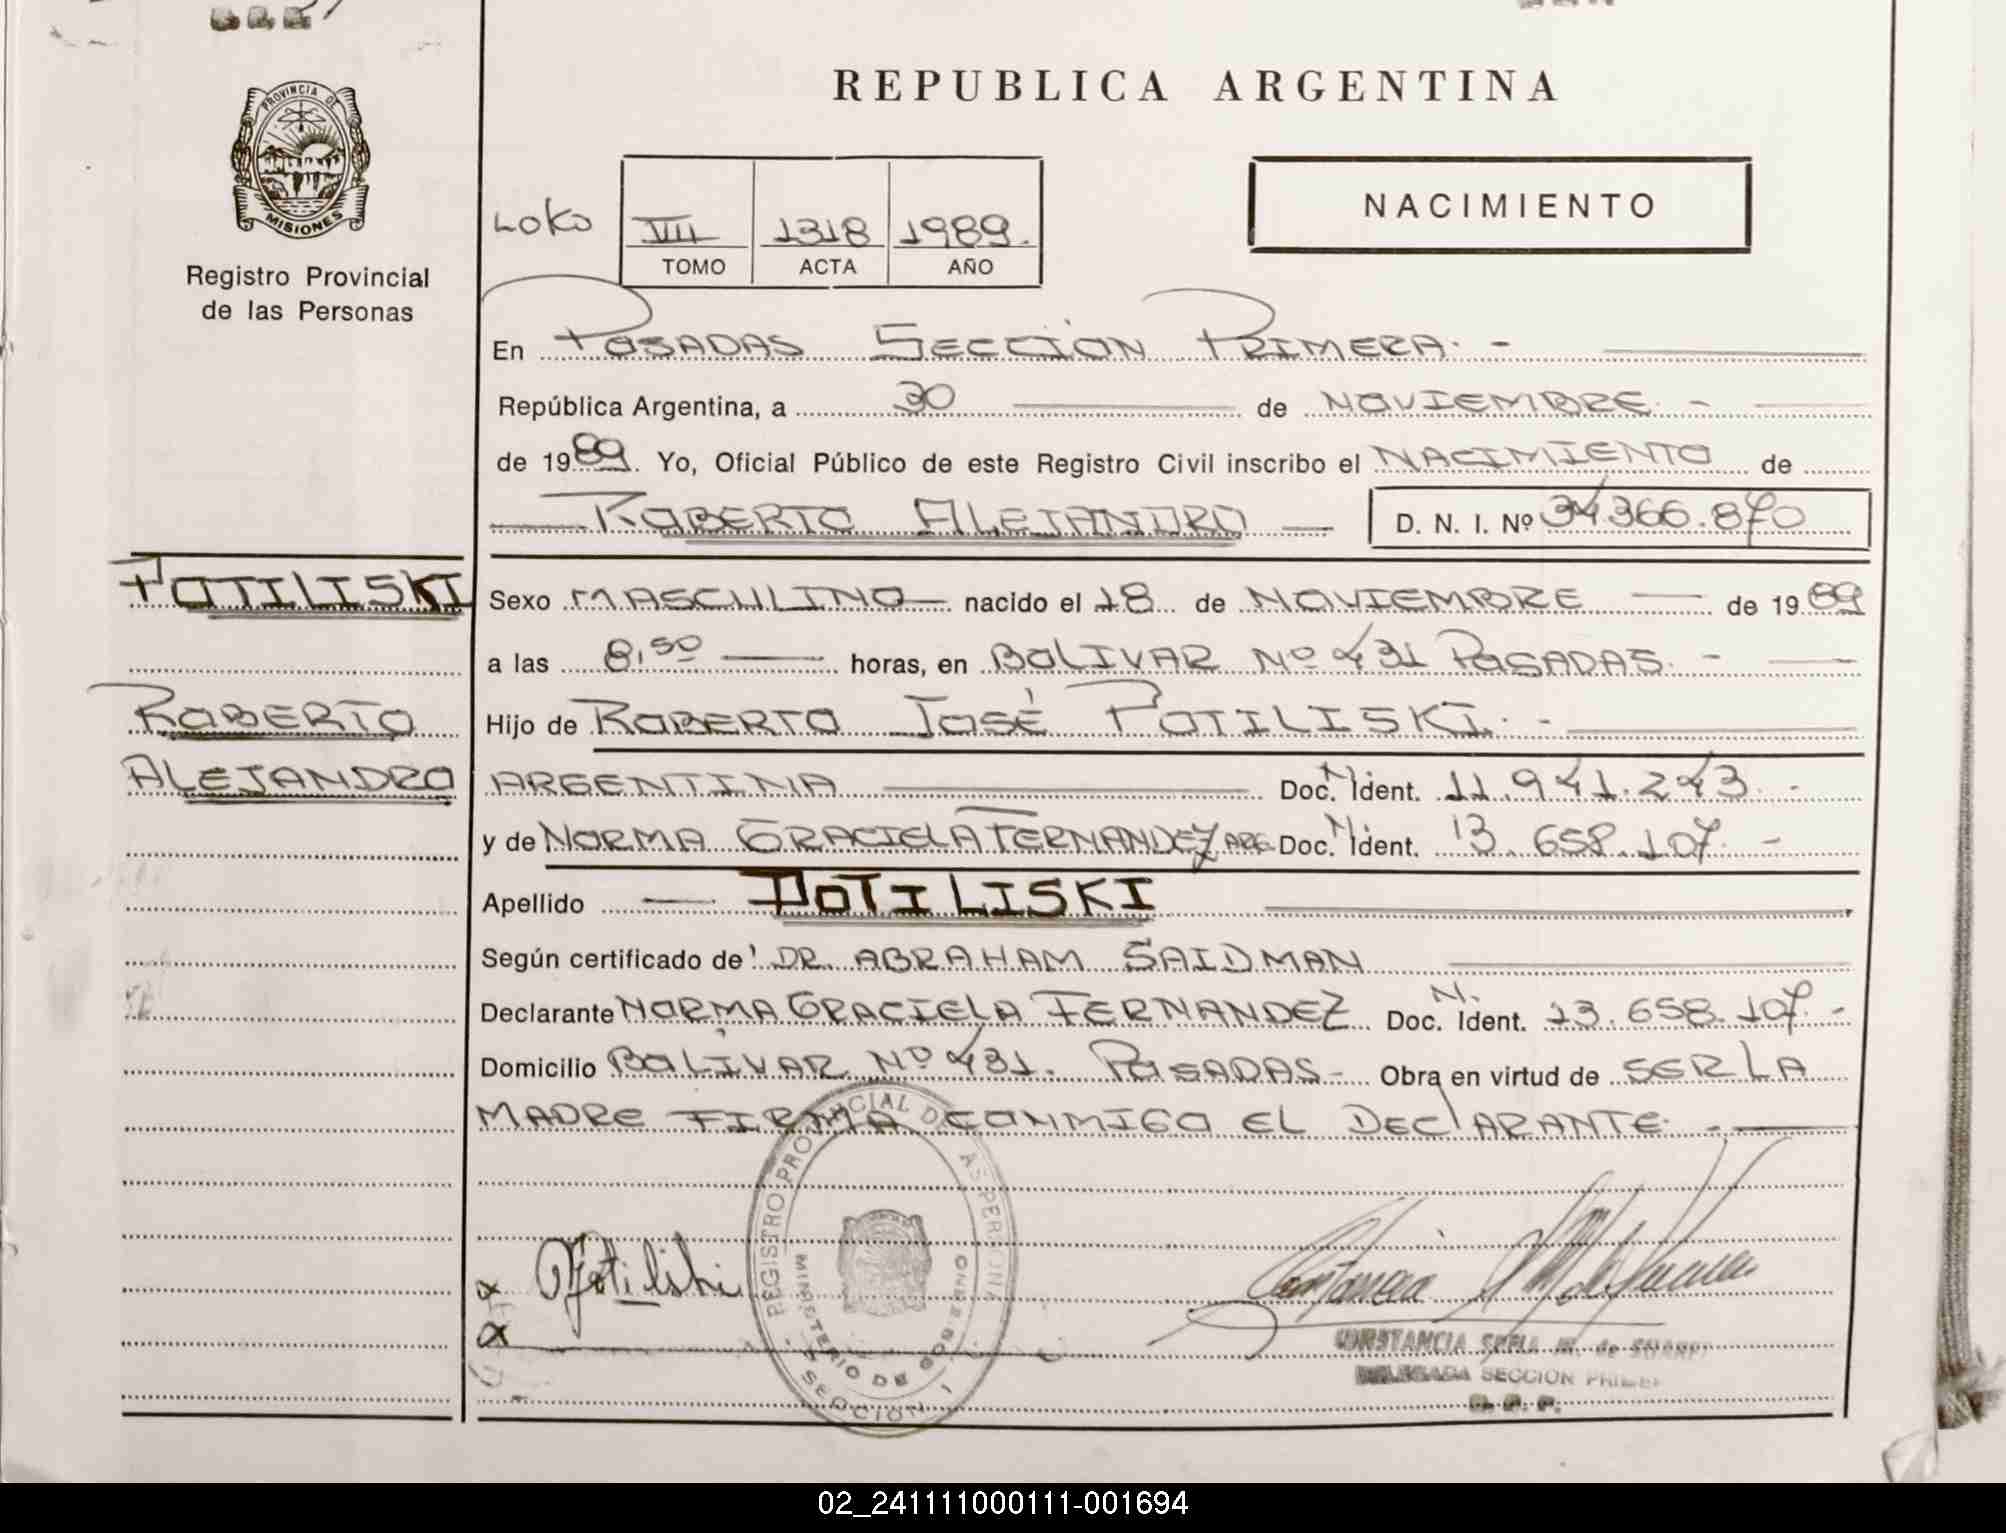 PROVINCIA DE
MISIONES
Registro Provincial
de las Personas
REPUBLICA ARGENTINA
NACIMIENTO
VIII 1318 1989.
TOMO ACTA AÑO
En POSADAS SECCIÓN PRIMERA. -
República Argentina, a 30 de NOVIEMBRE. -
de 1989. Yo, Oficial Público de este Registro Civil inscribo el NACIMIENTO de
ROBERTO ALEJANDRO D. N. I. Nº 34366.870
POTILISKI
Sexo MASCULINO nacido el 18 de NOVIEMBRE de 1989
a las 8,50 horas, en BOLIVAR Nº 431 POSADAS. -
ROBERTO
Hijo de ROBERTO JOSÉ POTILISKI. -
ALEJANDRO
ARGENTINA Doc. N. Ident. 11.941.243. -
y de NORMA GRACIELA FERNANDEZ ARG. Doc. N. Ident. 13.658.107. -
Apellido POTILISKI
Según certificado de DR. ABRAHAM SAIDMAN
Declarante NORMA GRACIELA FERNANDEZ Doc. N. Ident. 13.658.107. -
Domicilio BOLIVAR Nº 431. POSADAS- Obra en virtud de SER LA
MADRE FIRMA CONMIGO EL DECLARANTE. -
REGISTRO PROVINCIAL DE LAS PERSONAS
MINISTERIO DE GOBIERNO
SECCION 1
CONSTANCIA
DELEGADA SECCION
02_241111000111-001694